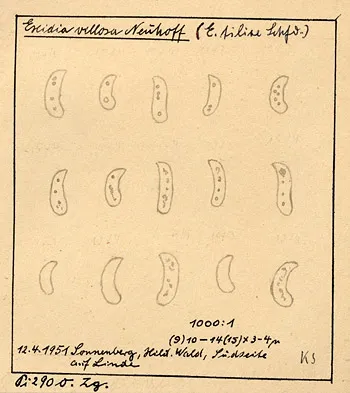 Exidia villosa Neuhoff (E. tiliae Schfd.)
1000:1
(9)10–14(15)×3-4µ
12.4.1951 Sonnenberg, Hild. Wald, Südseite
auf Linde
KS
Pi 290 v. Zg.